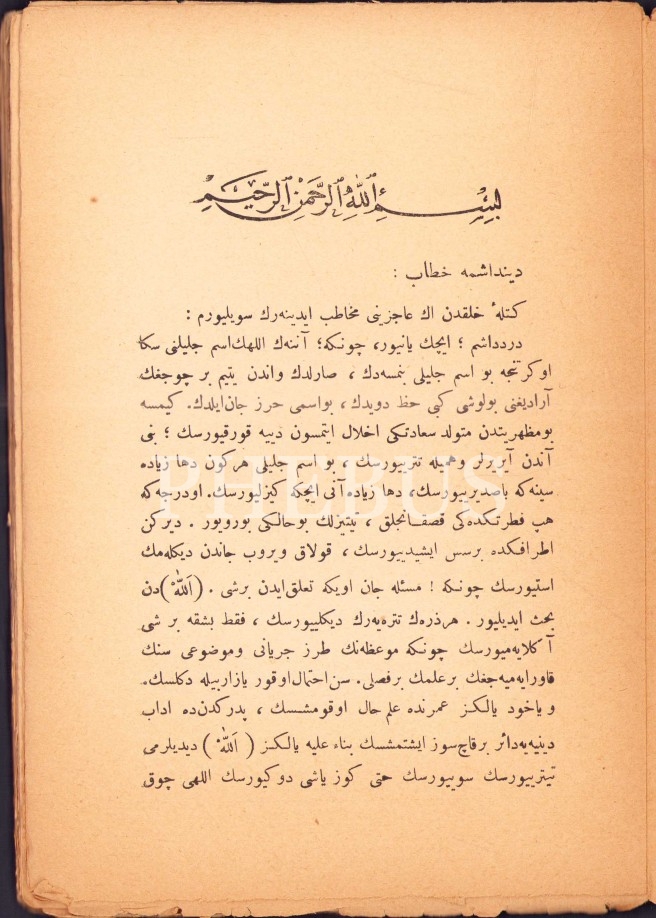 بِسْمِ ٱللّٰهِ ٱلرَّحْمٰنِ ٱلرَّحِيمِ
دینداشمه خطاب :
كتلهٔ خلقدن اك عاجزینی مخاطب ایدینه‌رك سویلیورم :
دردداشم ؛ ایچك یانیور، چونكه؛ آننه‌ك اللهك‌اسم جلیلنی سكا
اوكرتنجه بو اسم جلیلی بنمسه‌دك ، صارلدك واندن یتیم بر چوجغك
آرادیغنی بولوشی كبی حظ دویدك ، بواسمی حرز جان‌ایلدك. كیمسه
بومظهریتدن متولد سعادتكی اخلال ایتمسون دییه قورقیورسك ؛ بنی
آندن آیررلر وهمیله تتریبورسك ، بو اسم جلیلی هركون دها زیاده
سینه‌كه باصدیریبورسك، دها زیاده آنی ایچكه كیزلیورسك. اودرجه‌كه
هپ فطرتكده‌كی قصقــانجلق ، تیتیزلك بوحالكی بورویور . دیركن
اطرافكده برسس ایشیدییورسك ، قولاق ویروب جاندن دیكله‌مك
استیورسك چونكه ! مسئله جان اویكه تعلق‌ایدن برشی . (اَللّٰهْ) دن
بحث ایدیلیور . هرذره‌ك تتره‌یه‌رك دیكلییورسك ، فقط بشقه بر شی
آكلایه‌میورسك چونكه موعظه‌نك طرز جریانی وموضوعی سنك
قاورایه‌میه‌جغك برعلمك برفصلی. سن‌احتمال‌اوقور یازاربیله دكلسك.
و یاخود یالكز عمرنده علم حال اوقومشسك ، پدركدن‌ده اداب
دینیه‌یه‌دائر برقاچ‌سوز ایشتمشسك بناء علیه یالكز ( اَللّٰهْ ) دیدیلرمی
تیتریبورسك سوییورسك حتی كوز یاشی دوكیورسك اللهی چوق
PHEBUS